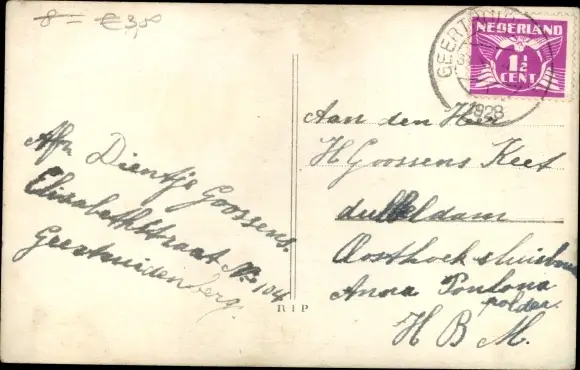 8 = € 3,50
GEERTRUID
1928
NEDERLAND
1½
CENT
Afz. Dientje Goossens.
Elisabethstraat No 104
Geertruidenberg.
Aan den Heer
H Goossens Keet
dubbeldam
Oosthoek sluis
Anna Poulona
polder.
H B M.
RIP